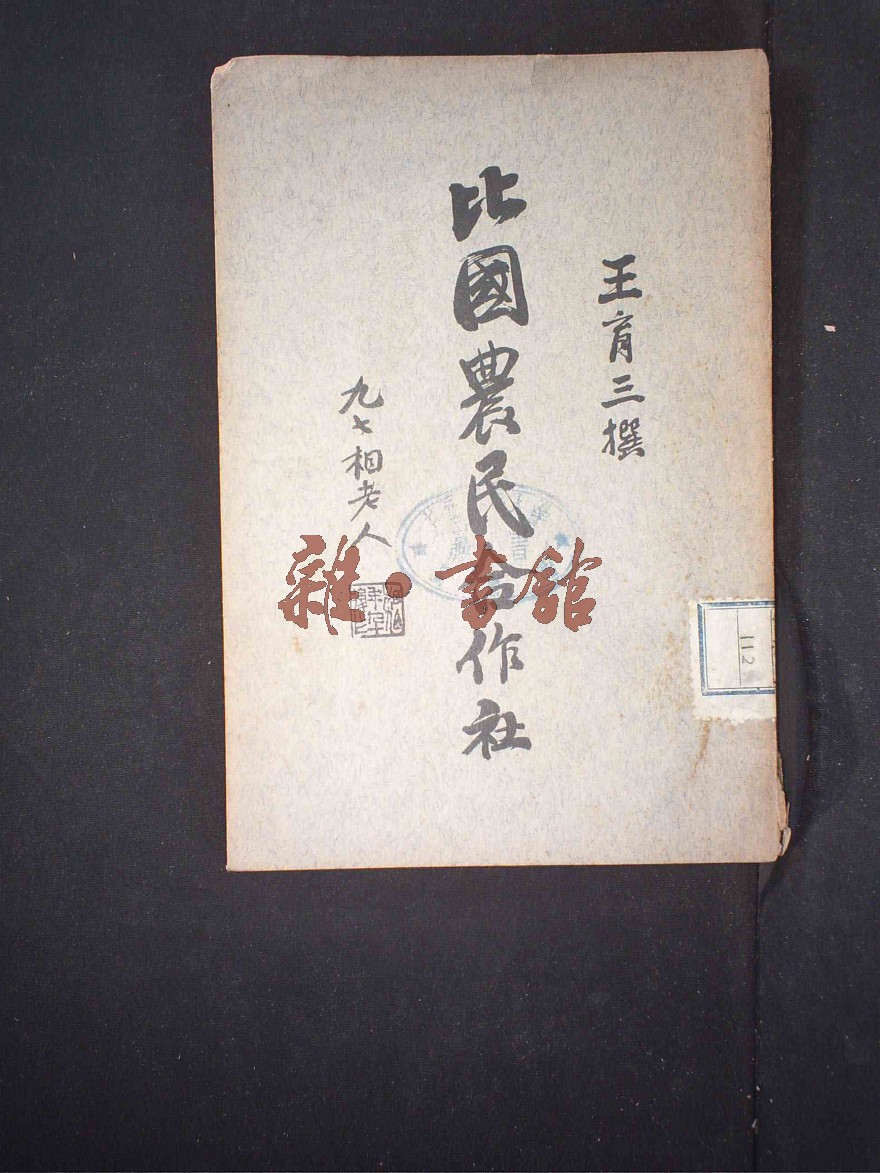 王育三撰
比國農民合作社
九七相老人
雜·書舘
112